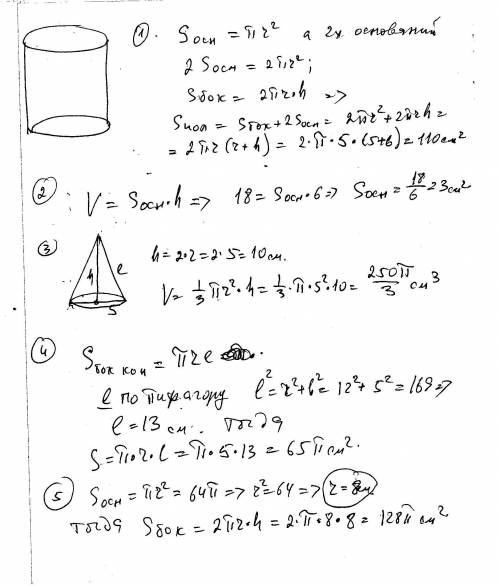 1. Sосн = πr² а 2х оснований
2 Sосн = 2πr²;
Sбок = 2πr·h =>
Sпол = Sбок + 2Sосн = 2πr² + 2πrh =
= 2πr(r+h) = 2·π·5·(5+6) = 110 см²
2 : V = Sосн·h => 18 = Sосн·6 => Sосн = 18/6 = 3 см²
3 h = 2·r = 2·5 = 10 см.
h l
V = 1/3 πr²·h = 1/3·π·5²·10 = 250π/3 см³
5
4 Sбок кон = πrl .
l по пифагору l² = r² + h² = 12² + 5² = 169 =>
l = 13 см. тогда
S = π·r·l = π·5·13 = 65π см².
5 Sосн = πr² = 64π => r² = 64 => r = 8см
тогда Sбок = 2πr·h = 2·π·8·8 = 128π см²